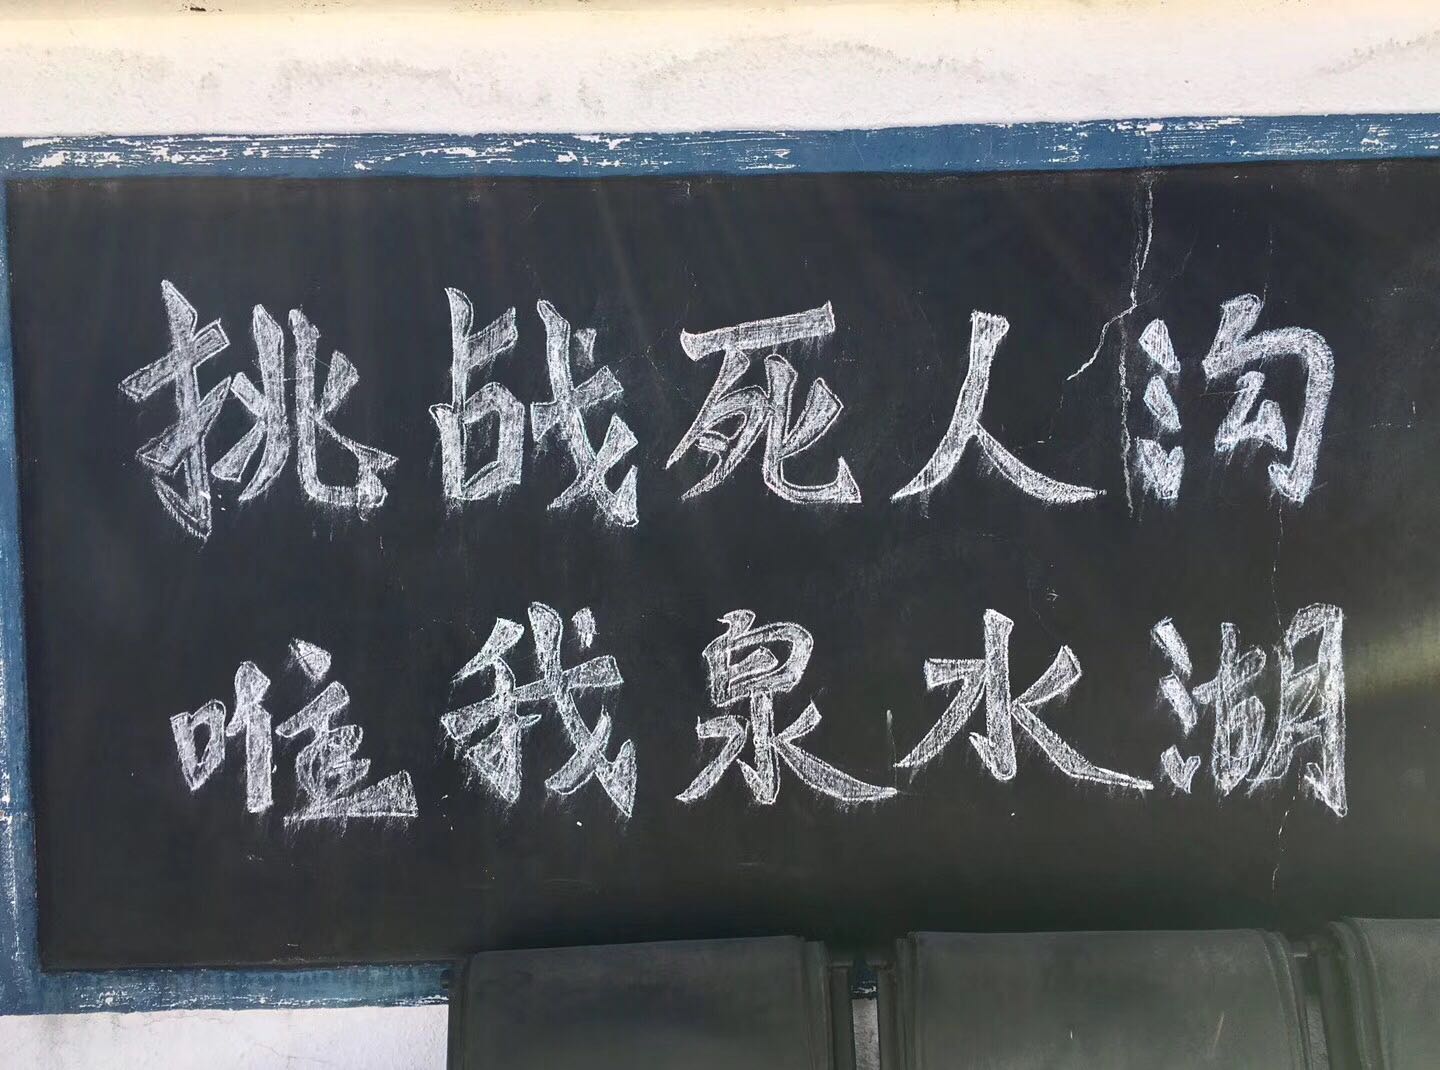 挑战死人沟
唯我泉水湖